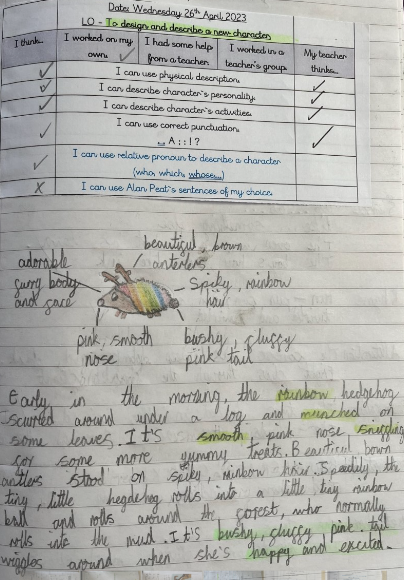 Date: Wednesday 26th April, 2023
LO - To design and describe a new character
I think...
I worked on my own
I had some help from a teacher
I worked in a teacher's group
My teacher thinks...
I can use physical description.
I can describe character's personality.
I can describe character's activities.
I can use correct punctuation.
... A , : ! ?
I can use relative pronoun to describe a character
(who, which, whose...)
I can use Alan Peat's sentences of my choice.
beautiful, brown
anterlers
adorable
furry body
and face
Spiky, rainbow
hair
pink, smooth
nose
bushy, fluffy
pink tail
Early in the morning, the rainbow hedgehog
scurried around under a log and munched on
some leaves. It's smooth pink nose sniffing
for some more yummy treats. Beautiful bown
antlers stood on spiky, rainbow hair. Speedily, the
tiny, little hegdehog rolls into a little tiny rainbow
ball and rolls around the forest, who normally
rolls into the mud. It's bushy, fluffy pink tail
wiggles around when she's happy and excited.